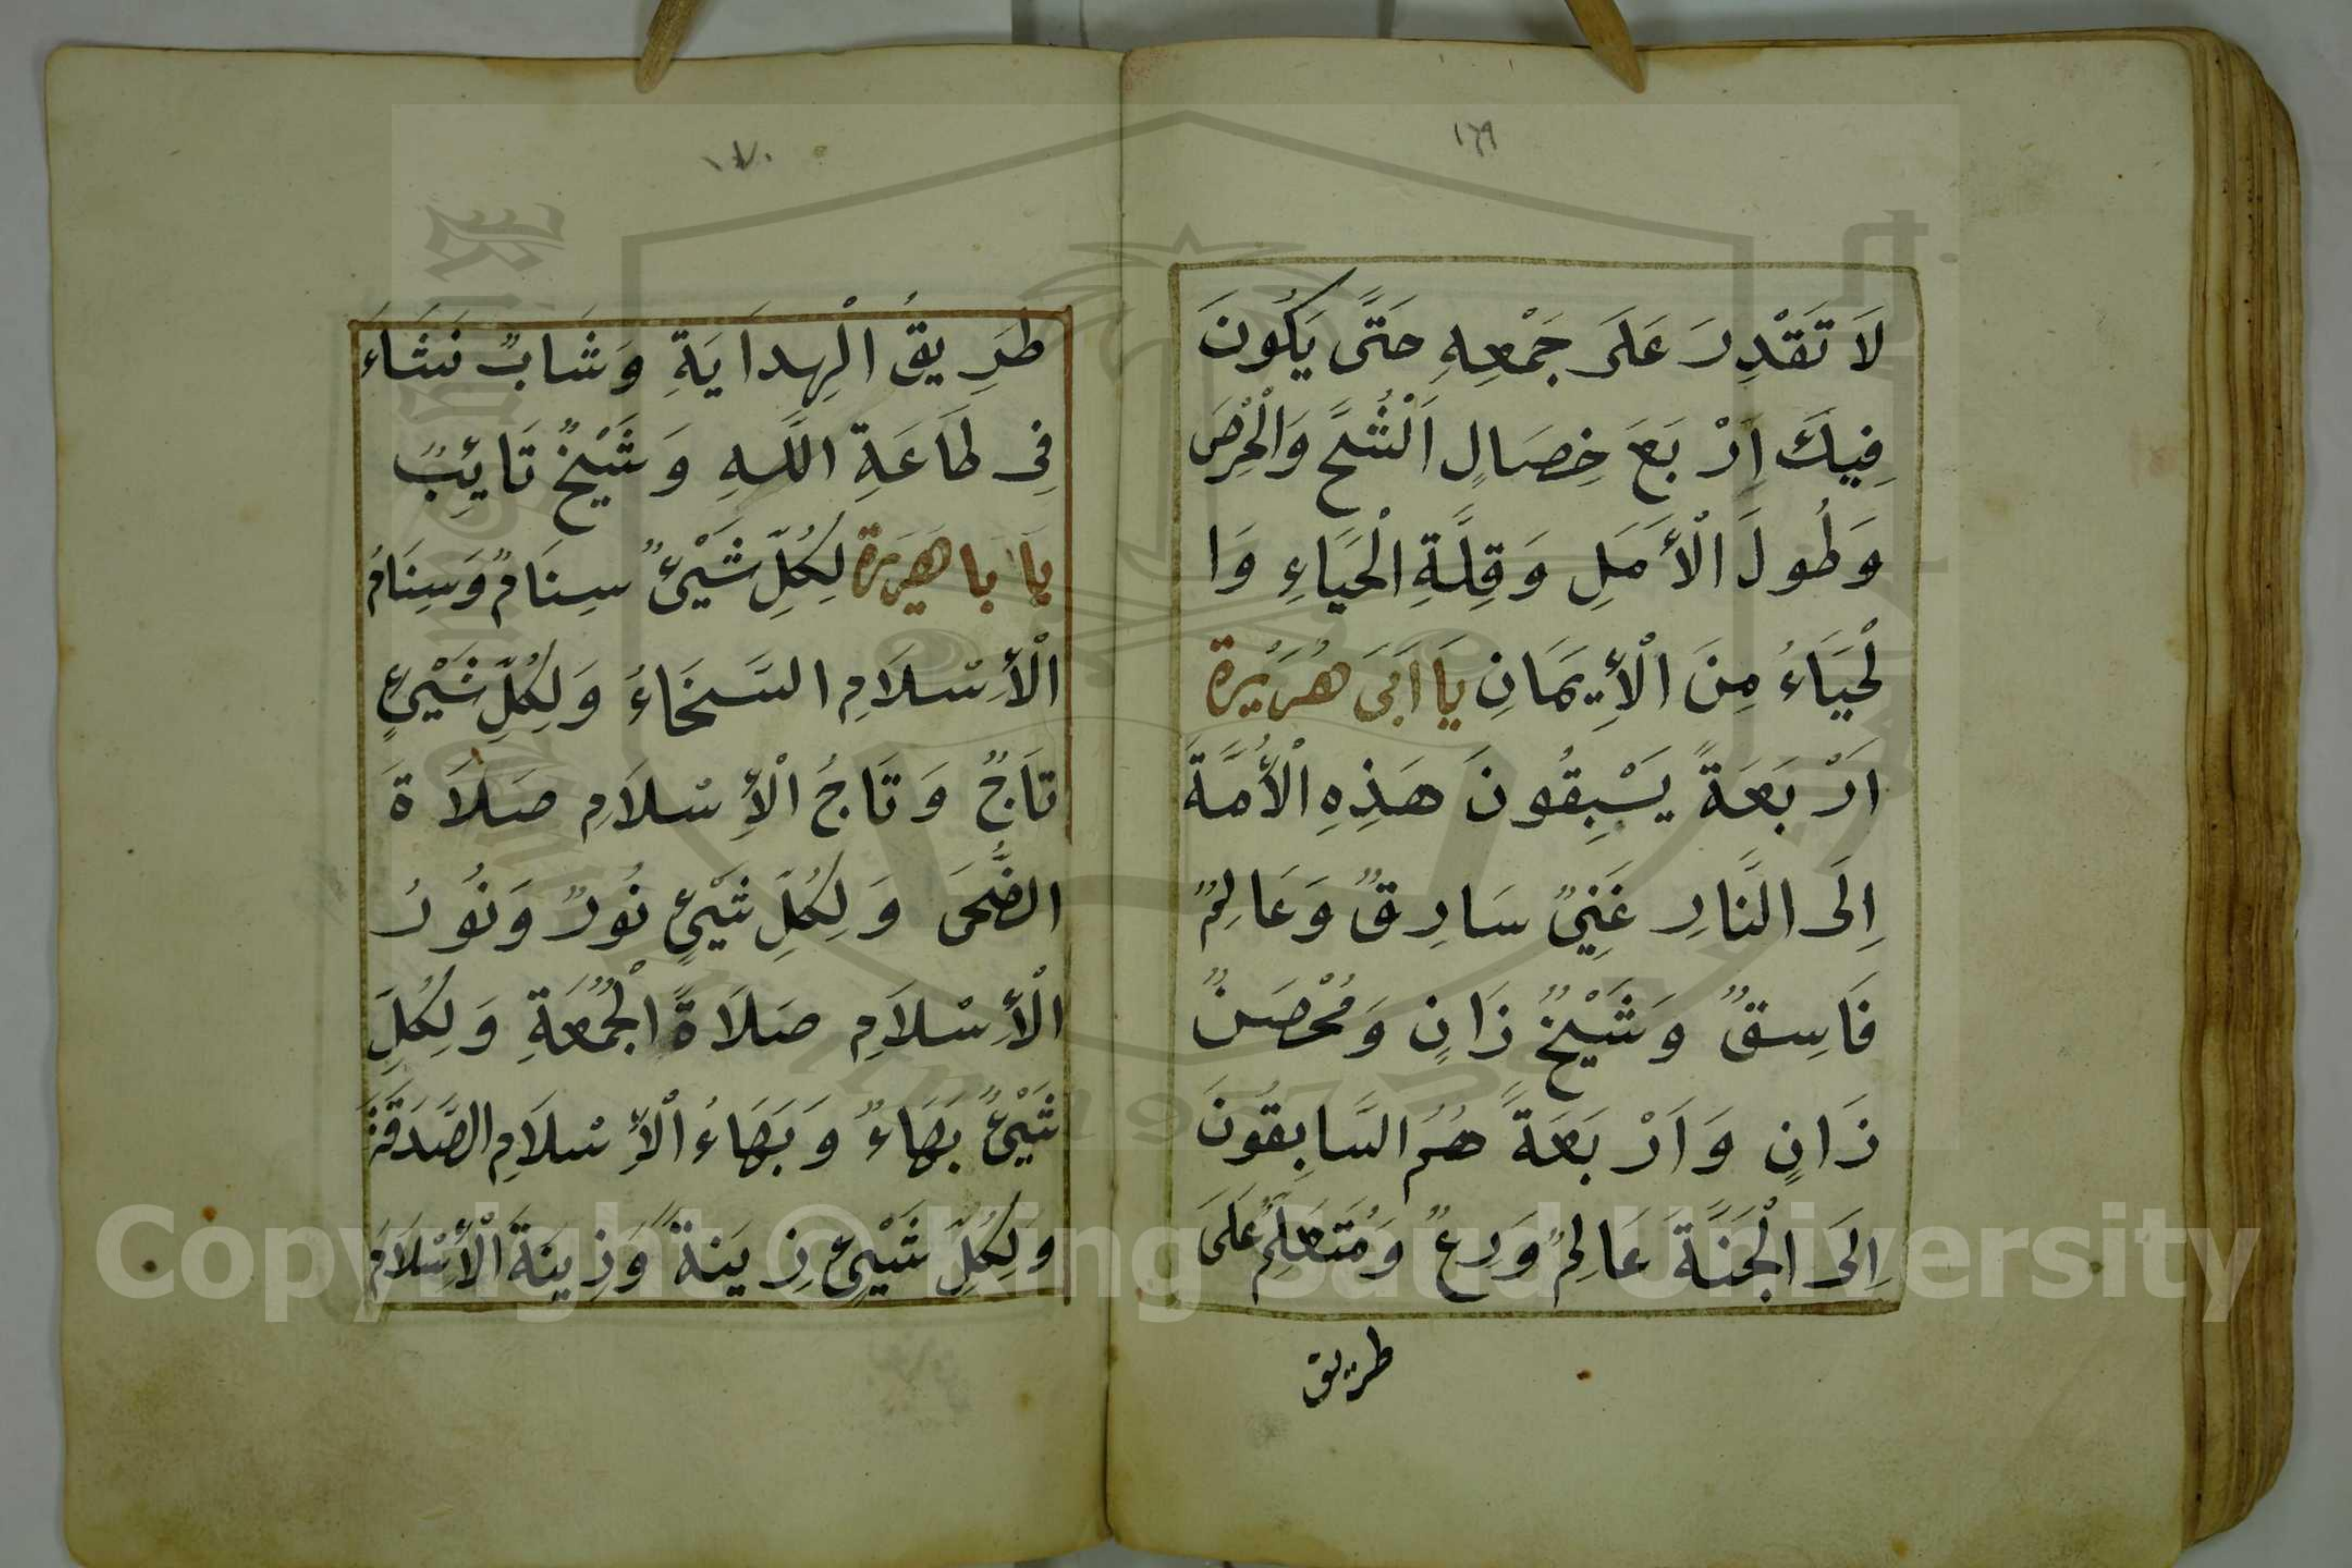 ١٦٩
لَا تَقْدِرَ عَلَى جَمْعِهِ حَتَّى يَكُونَ
فِيكَ اَرْبَعَ خِصَالٍ اَلْشُحَّ وَالْحِرْصَ
وَطُولَ الْأَمَلِ وَقِلَّةِ الْحَيَاءِ وَا
لْحَيَاءُ مِنَ الْأِيمَانِ يَا اَبَى هُرَيْرَة
اَرْبَعَةً يَسْبِقُونَ هَذِهِ الْأُمَّةَ
اِلَى النَّارِ غَنِيٌ سَارِقٌ وَعَالِمٌ
فَاسِقٌ وَشَيْخٌ زَانٍ وَمُحْصَنٌ
زَانٍ وَاَرْبَعَةً هُمُ السَّابِقُونَ
اِلَى الْجَنَّةَ عَالِمٌ وَرِعٌ وَمُتَعَلِّمٌ عَلَى
طريق
١٧٠
طَرِيقُ الْهِدَايَةِ وَشَابٌ نَشَاءَ
فِى طَاعَةِ اللَّهِ وَشَيْخٌ تَائِبٌ
يَا اَبا هَرَيرَة لِكُلِّ شَيْئٌ سِنَامٌ وَسِنَامُ
الْأِسْلَامِ السَّخَاءُ وَلِكُلِّ شَيْئٍ
تَاجٌ وَتَاجُ الْأِسْلَامِ صَلَاةَ
الضُّحَى وَلِكُلِّ شَيْئٍ نُورٌ وَنُورُ
الْأِسْلَامِ صَلَاةً الْجُمُعَةِ وَلِكُلِّ
شَيْئٌ بَهَاءٌ وَبَهَاءُ الْأِسْلَامِ الصَّدَقَةَ
وَلِكُلِّ شَيْئٍ زِينَةً وَزِينَةَ الْأِسْلَامُ
Copyright © King Saud University